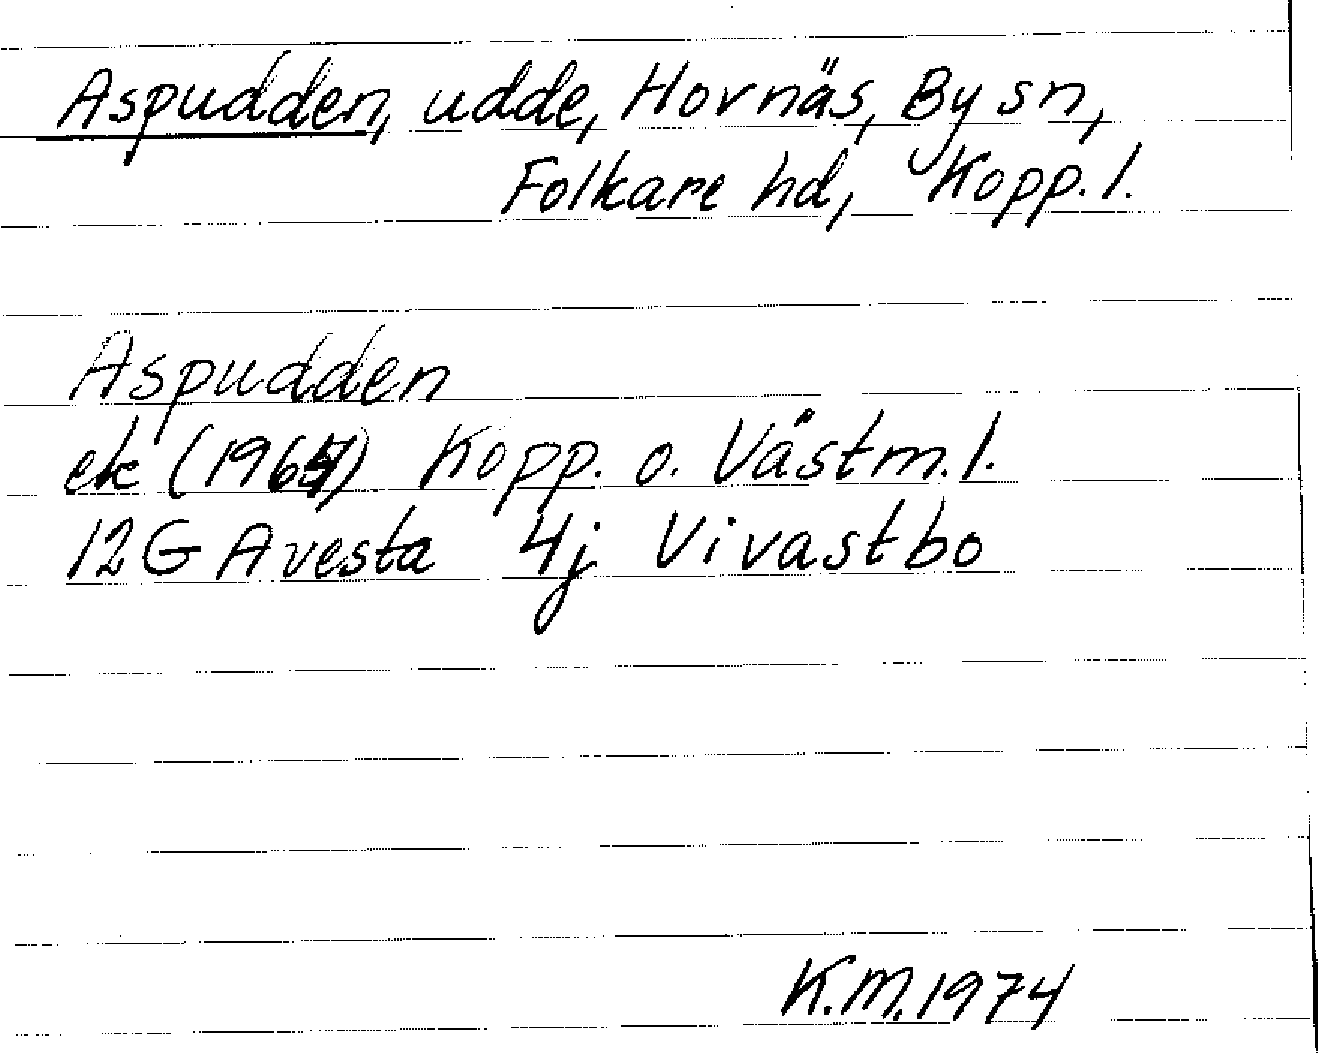 Aspudden, udde, Hovnäs, By sn,
Folkare hd, Kopp. l.
Aspudden
ek (1964) Kopp. o. Västm. l.
12G Avesta 4j Vivastbo
K.M. 1974